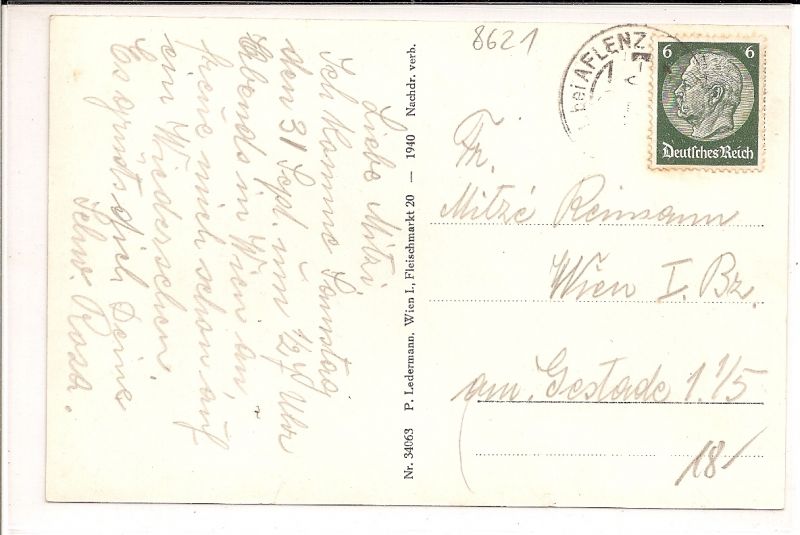 8621
bei AFLENZ
6 6
Deutsches Reich
Liebe Mitzi
Ich komme Samstag
den 31 Sept. um ½ Uhr
Abends in Wien an,
freue mich schon auf
ein Wiedersehen.
Es grüsst dich Deine
Schw. Rosa.
Nr. 34063 P. Ledermann, Wien I., Fleischmarkt 20 — 1940 Nachdr. verb.
Fr.
Mitzi Reimann
Wien I. Bz.
am Gestade 1. 1/5
18/